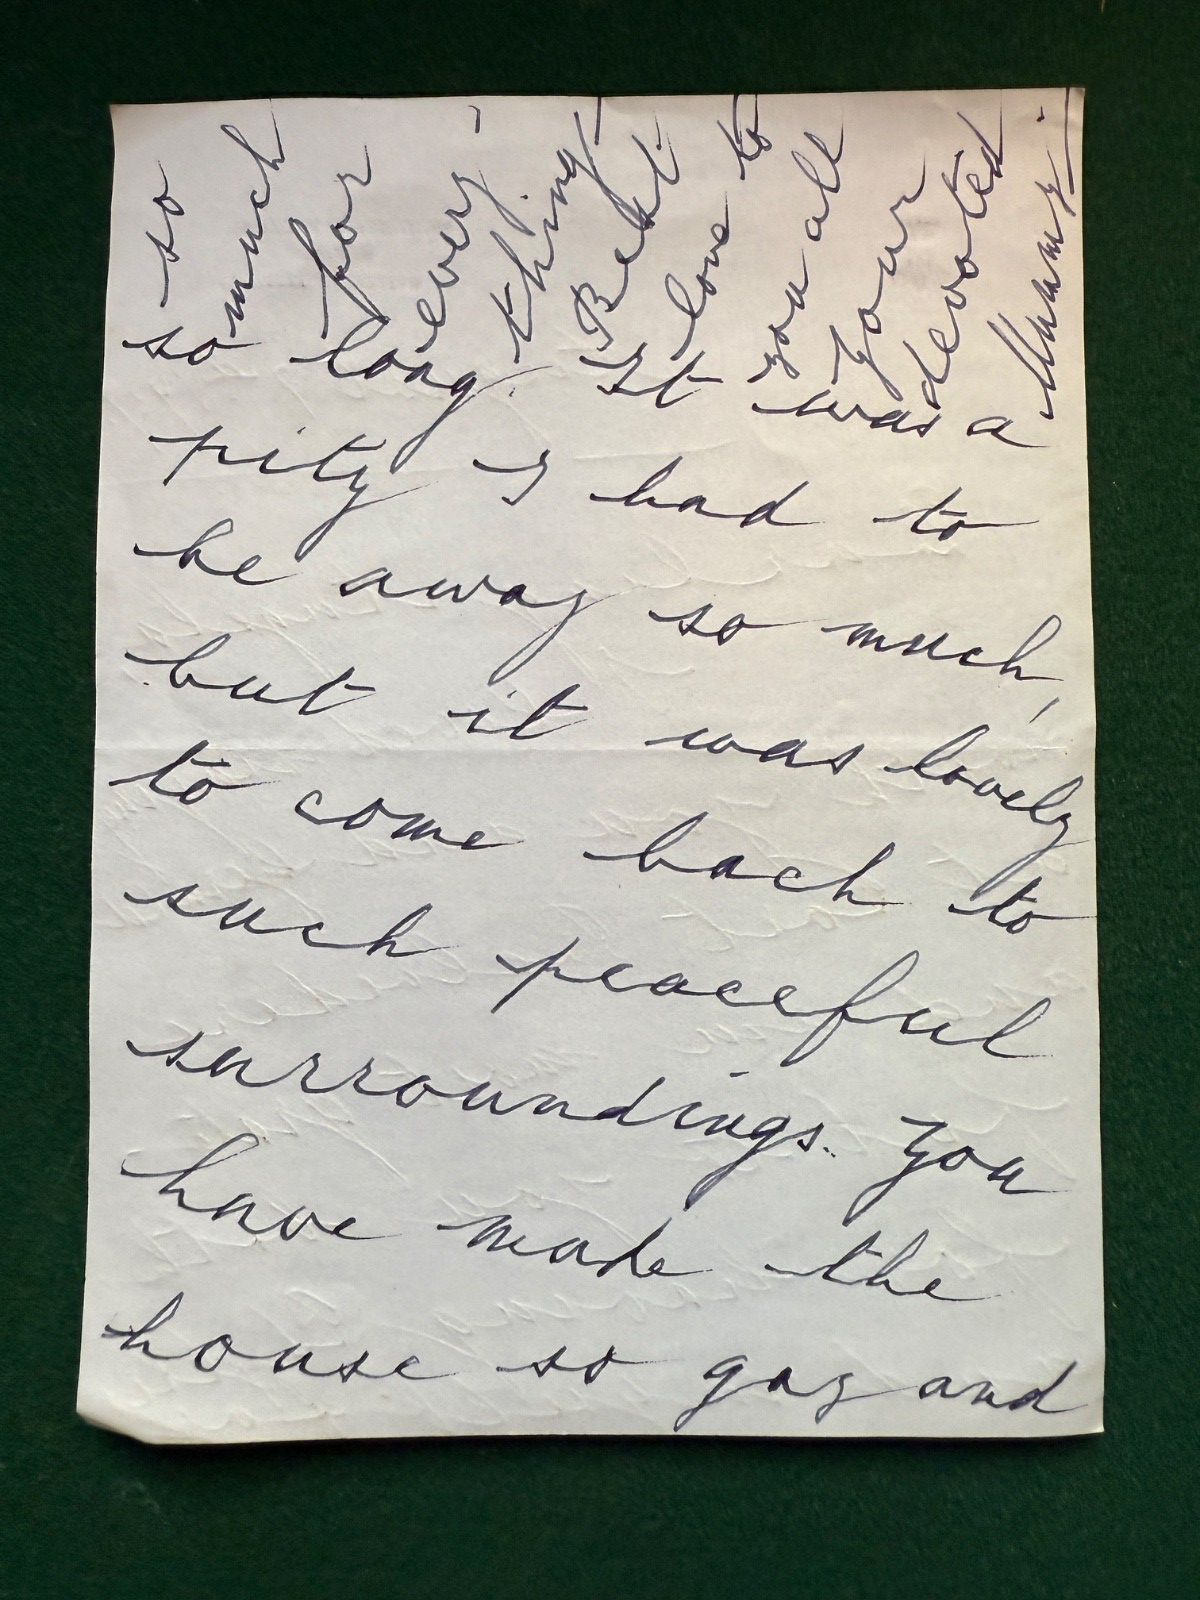 so
much
for
every-
thing -
Best
love to
you all
your
devoted
Mummy.
so long. It was a
pity I had to
be away so much,
but it was lovely
to come back to
such peaceful
surroundings. You
have made the
house so gay and